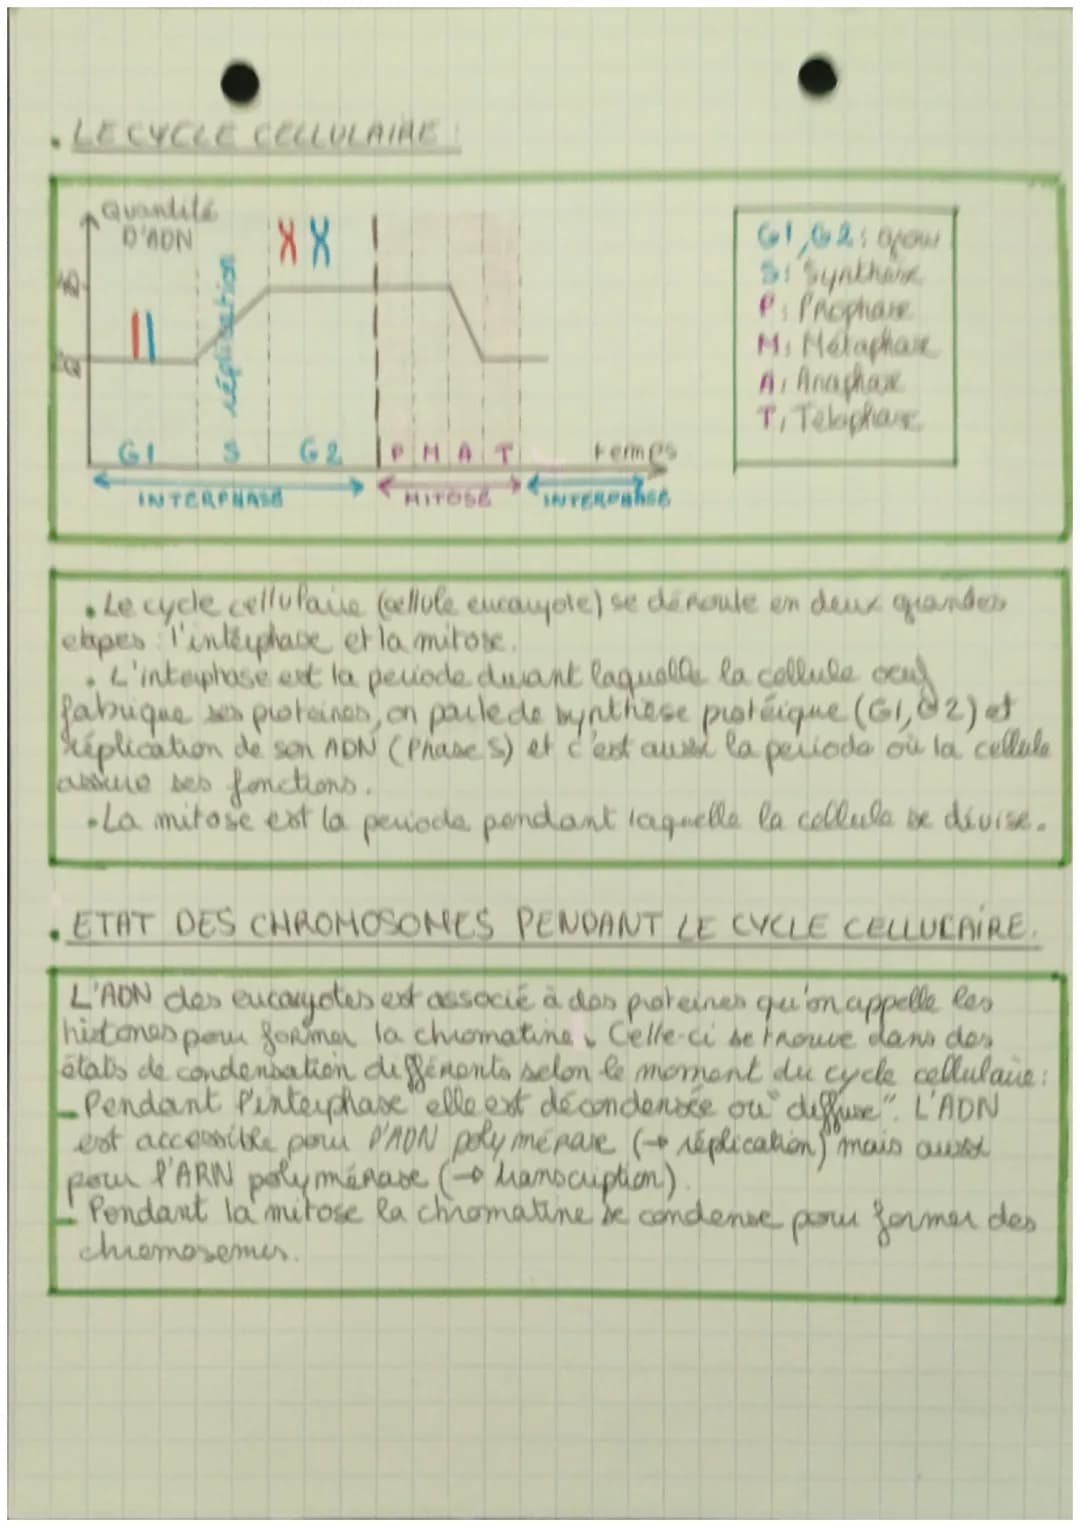 . LE CYCLE CELLULAIRE :
Quantité
D'ADN
4Q
2Q
réplication
G1 S G2 P M A T temps
INTERPHASE MITOSE INTERPHASE
G1, G2 : grow
S : Synthèse
P : Prophase
M : Métaphase
A : Anaphase
T : Telophase
. Le cycle cellulaire (cellule eucaryote) se déroule en deux grandes
etapes : l'interphase et la mitose.
. L'interphase est la periode durant laquelle la cellule
fabrique ses proteines, on parle de synthèse protéique (G1, G2) et
réplication de son ADN (Phase S) et c'est aussi la periode où la cellule
assure ses fonctions.
. La mitose est la periode pendant laquelle la cellule se divise.
. ETAT DES CHROMOSOMES PENDANT LE CYCLE CELLULAIRE.
L'ADN des eucaryotes est associé à des proteines qu'on appelle les
histones pour former la chromatine. Celle-ci se trouve dans des
états de condensation différents selon le moment du cycle cellulaire :
- Pendant l'interphase elle est décondensée ou "diffuse". L'ADN
est accessible pour l'ADN polymérase (→ réplication) mais aussi
pour l'ARN polymérase (→ transcription).
- Pendant la mitose la chromatine se condense pour former des
chromosomes.